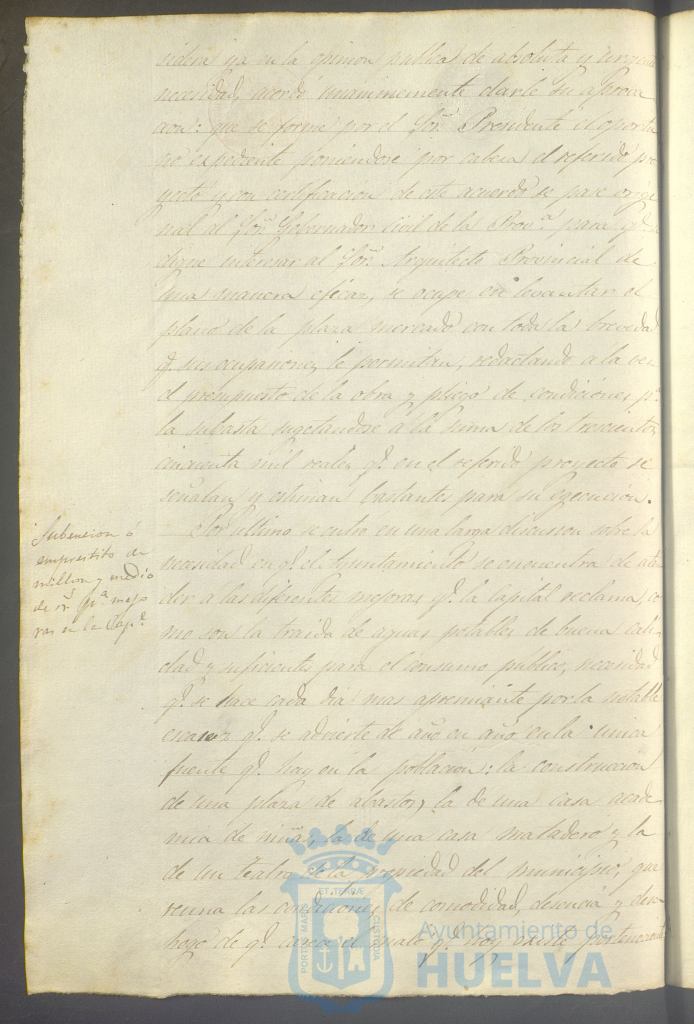 sidera ya en la opinion publica de absoluta y urgente
necesidad, acordó unanimemente darle su aprova
cion: que se forme por el Sor. Presidente el oportu
no expediente poniendose por cabeza el referido pro
yecto y con certificacion de este acuerdo se pase origi
nal al Sor. Gobernador Civil de la Prova. para q.
digne interesar al Sor. Arquitecto Provincial de
una manera eficaz, se ocupe en levantar el
plano de la plaza mercado con toda la brevedad
q. sus ocupaciones le permitan, redactando a la vez
el presupuesto de la obra y pliego de condiciones pa.
la subasta sugetandose a la suma de los trescientos
cincuenta mil reales q. en el referido proyecto se
señalan y estiman bastantes para su egecucion.
Por ultimo se entro en una larga discusion sobre la
necesidad en q. el Ayuntamiento se encuentra de aten
der a las diferentes mejoras q. la capital reclama, co
mo son la traida de aguas potables de buena cali
dad y suficientes para el consumo publico, necesidad
q. se hace cada dia mas apremiante por la notable
escasez q. se advierte de año en año en la unica
fuente q. hay en la poblacion: la construccion
de una plaza de abastos, la de una casa acade
mia de niñas, la de una casa matadero y la
de un teatro de la propiedad del municipio, que
reuna las condiciones de comodidad, desencia y desa
hogo de q. carece el malo q. hoy existe perteneciente
Subencion ó
emprestito de
millon y medio
de rs. pa. mejo
ras en la Capl.
PORTUS MARIS
ET TERRÆ
CUSTODIA
Ayuntamiento de
HUELVA